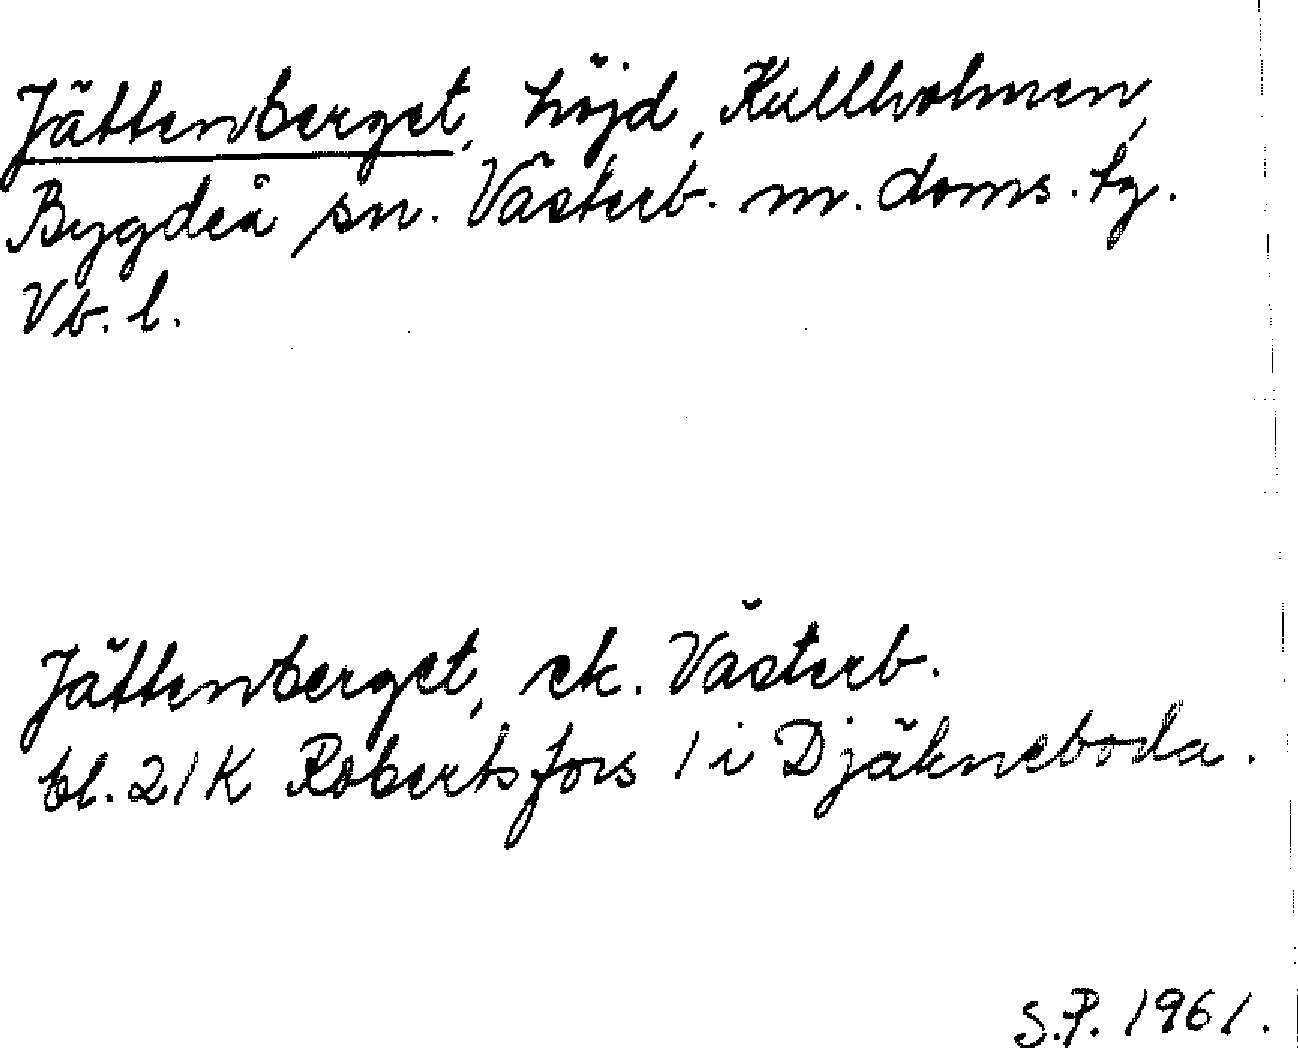 Jättenberget, höjd, Kullholmen,
Bygdeå sn. Västerb. m. doms. tg.
Vb. l.
Jättenberget, ek. Västerb.
bl. 21K Robertsfors 1 i Djäkneboda.
S.P. 1961.